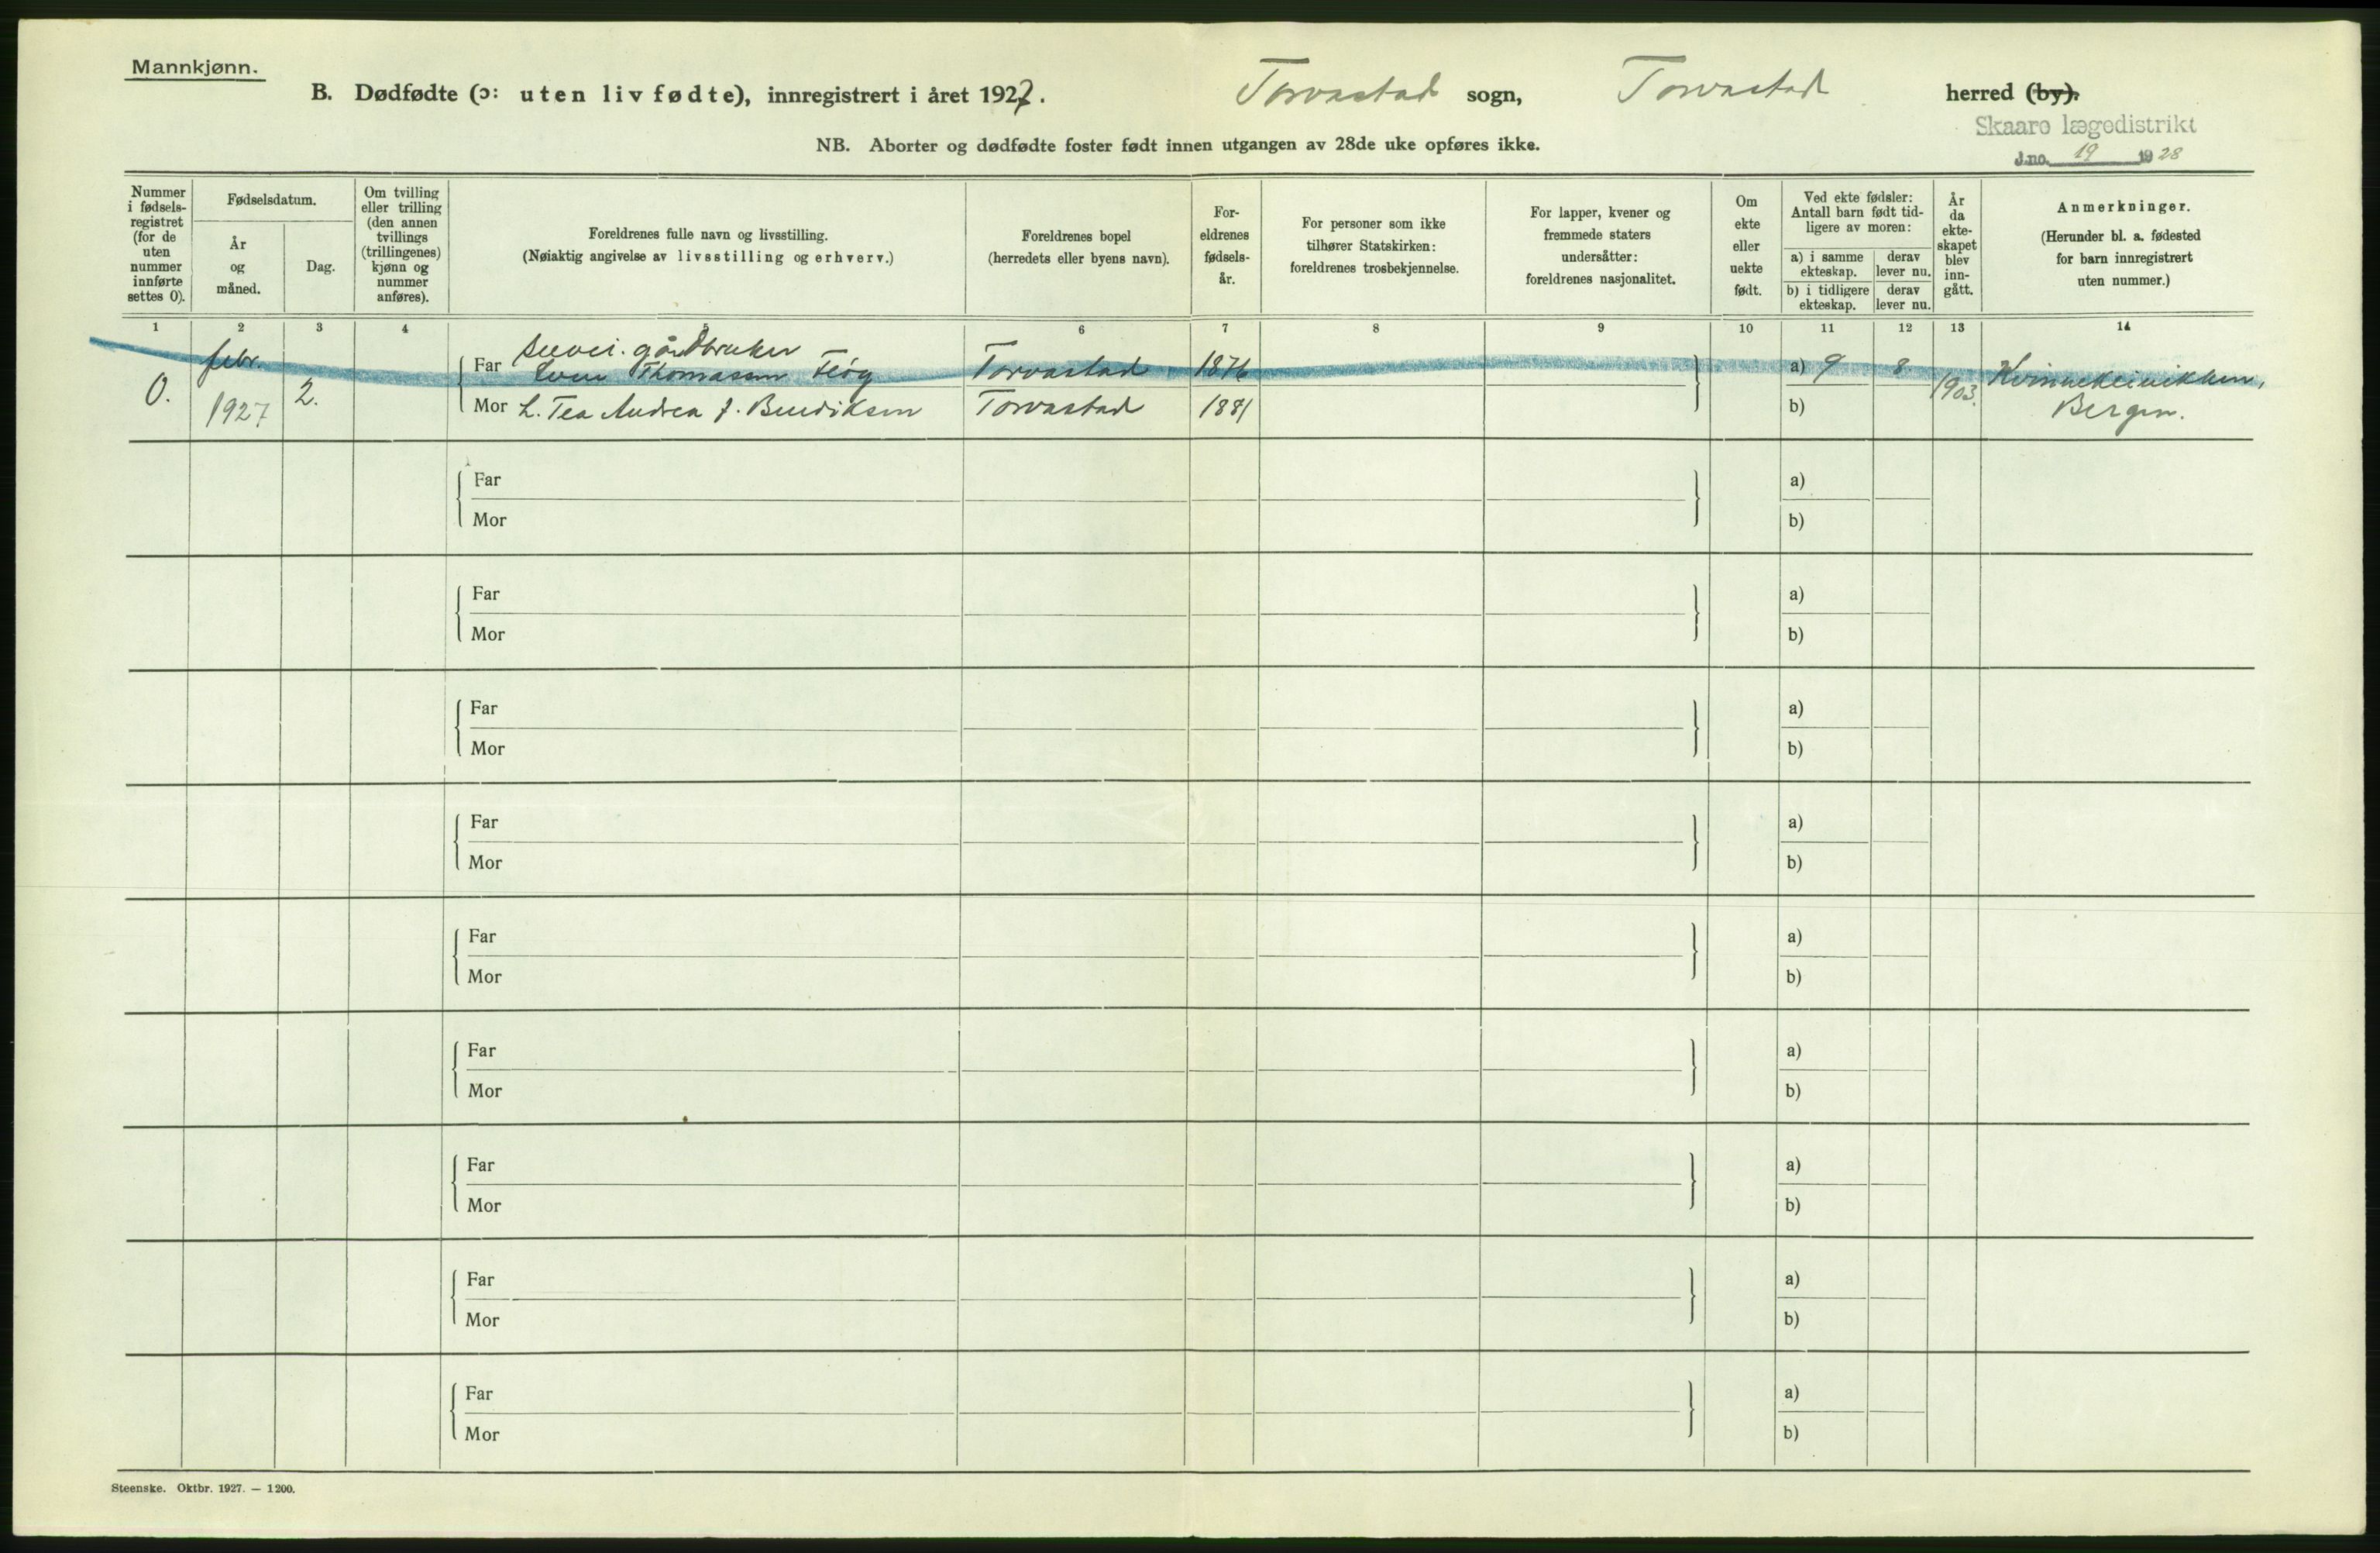 Mannkjønn.
B. Dødfødte (ɔ: uten liv fødte), innregistrert i året 1927. Torvastad sogn, Torvastad herred (by).
Skaare lægedistrikt
J.no. 19 1928
NB. Aborter og dødfødte foster født innen utgangen av 28de uke opføres ikke.
Nummer i fødsels-registret (for de uten nummer innførte settes 0).
Fødselsdatum.
År og måned.
Dag.
Om tvilling eller trilling (den annen tvillings (trillingenes) kjønn og nummer anføres).
Foreldrenes fulle navn og livsstilling.
(Nøiaktig angivelse av livsstilling og erhverv.)
Foreldrenes bopel
(herredets eller byens navn).
For-eldrenes fødsels-år.
For personer som ikke tilhører Statskirken: foreldrenes trosbekjennelse.
For lapper, kvener og fremmede staters undersåtter: foreldrenes nasjonalitet.
Om ekte eller uekte født.
Ved ekte fødsler: Antall barn født tid-ligere av moren:
a) i samme ekteskap.
derav lever nu.
b) i tidligere ekteskap.
derav lever nu.
År da ekte-skapet blev inn-gått.
Anmerkninger.
(Herunder bl. a. fødested for barn innregistrert uten nummer.)
1 2 3 4 5 6 7 8 9 10 11 12 13 14
gårdbruker
0. febr. 1927 2.
Far Thomassen Torvastad 1876 a) 9 8 1903. Kvinneklinikken,
Mor Tea Andrea Torvastad 1881 b) Bergen.
Far a)
Mor b)
Far a)
Mor b)
Far a)
Mor b)
Far a)
Mor b)
Far a)
Mor b)
Far a)
Mor b)
Far a)
Mor b)
Far a)
Mor b)
Far a)
Mor b)
Steenske. Oktbr. 1927. — 1200.